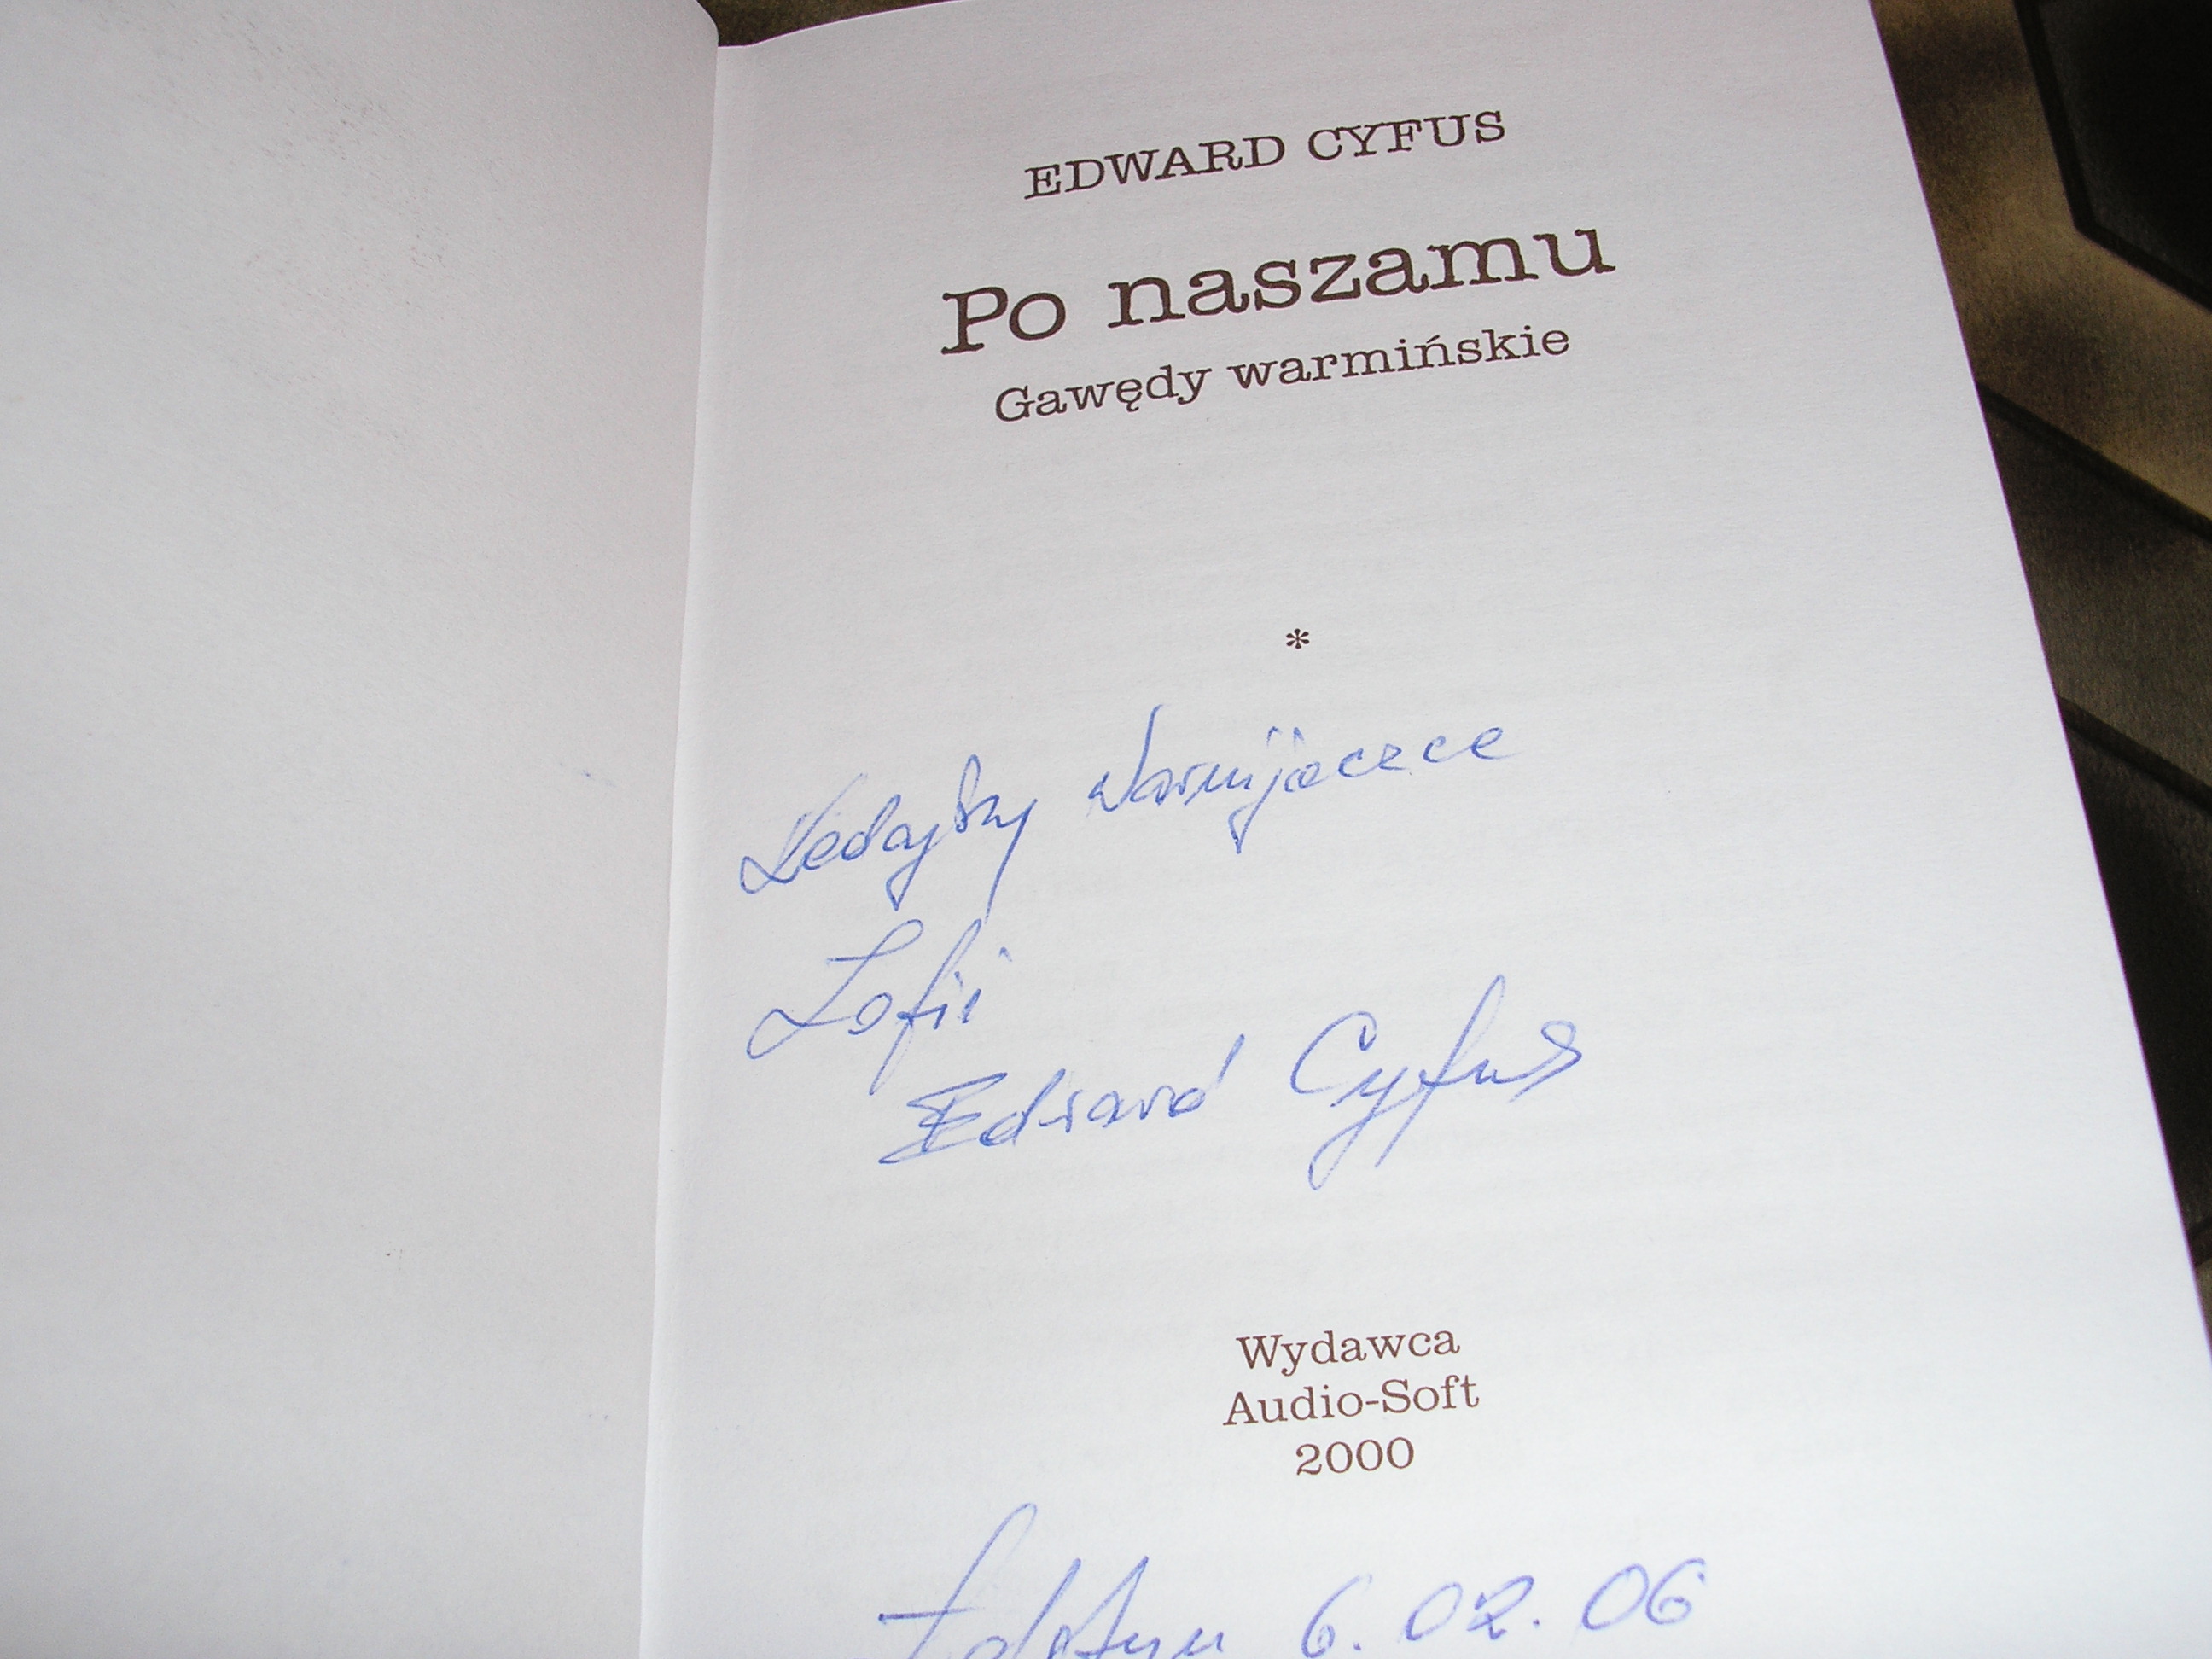 EDWARD CYFUS
Po naszamu
Gawędy warmińskie
*
Warmijaczce
Zofii
Edward Cyfus
Wydawca
Audio-Soft
2000
6.02.06